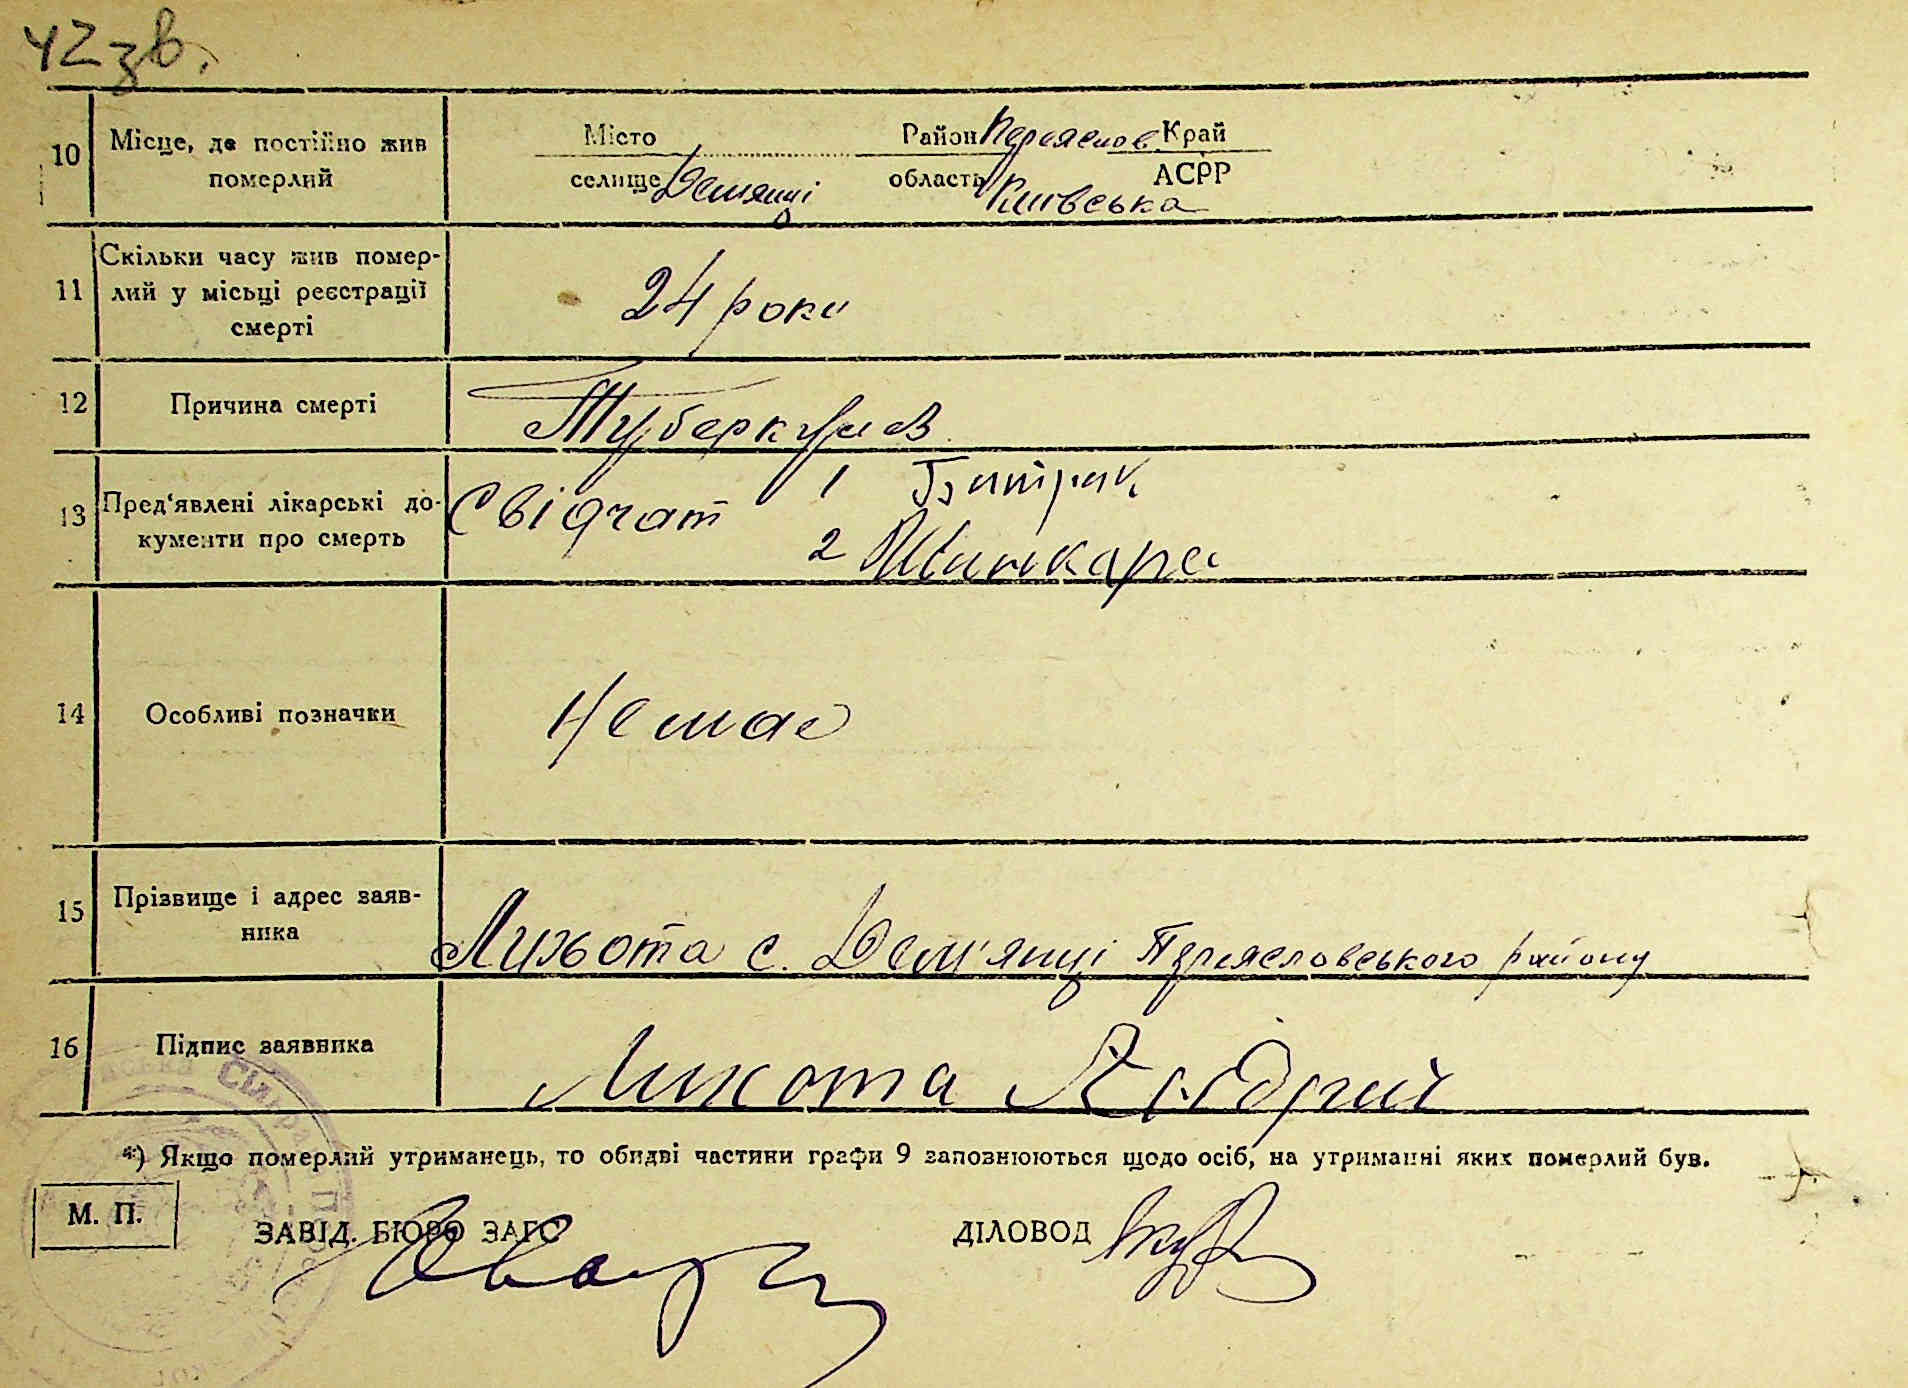 42 зв.
10 Місце, де постійно жив померлий
Місто Район Переяслов Край
селище Демянці область Київська АСРР
11 Скільки часу жив помер-
лий у місьці реєстрації
смерті
24 роки
12 Причина смерті
Туберкульов
13 Пред'явлені лікарські до-
кументи про смерть
Свідчат 1
2 Шинкаре
14 Особливі позначки
Немає
15 Прізвище і адрес заяв-
ника
Лихота с. Дем'янці Переясловського району
16 Підпис заявника
Лихота Андрий
*) Якщо померлий утриманець, то обидві частини графи 9 запознюються щодо осіб, на утриманні яких померлий був.
М. П.
ЗАВІД. БЮРО ЗАГС ДІЛОВОД